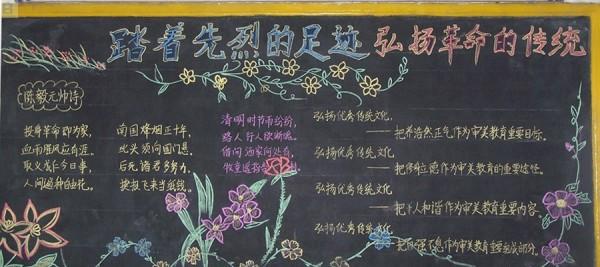 踏着先烈的足迹 弘扬革命的传统
陈毅元帅诗
投身革命即为家，
血雨腥风应有涯。
取义成仁今日事，
人间遍种自由花。
南国烽烟正十年，
此头须向国门悬。
后死诸君多努力，
捷报飞来当纸钱。
清明时节雨纷纷，
路人行人欲断魂。
借问酒家何处有，
牧童遥指
弘扬优秀传统文化，
——把养浩然正气作为审美教育重要目标。
弘扬优秀传统文化，
作为审美教育的重要途径。
弘扬优秀传统文化
——把 人和谐作为审美教育重要内容。
弘扬优秀传统文化
——把自强不息作为审美教育重要组成部分。